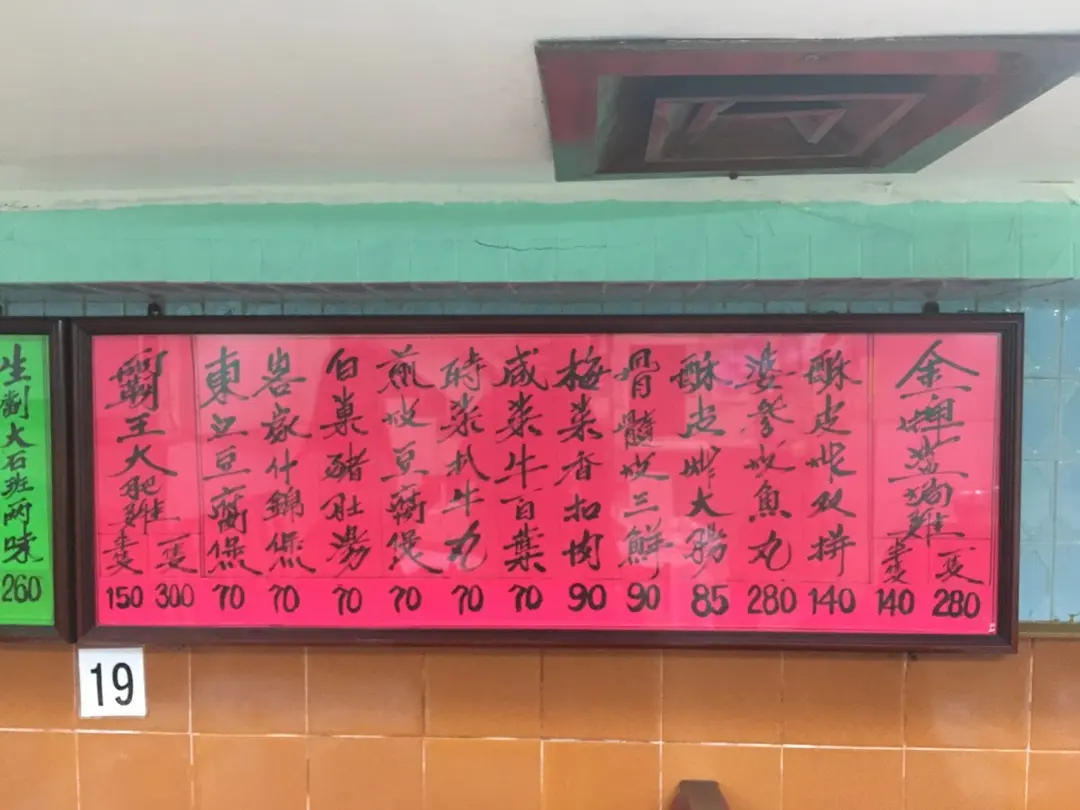 金牌鹽焗雞
一隻 280
半隻 140
酥皮炸双拼 140
婆參炆魚丸 280
酥皮炸大腸 85
骨髓炆三鮮 90
梅菜香扣肉 90
咸菜牛百葉 70
時菜扒牛丸 70
煎炆豆腐煲 70
白菓豬肚湯 70
客家什錦煲 70
東江豆腐煲 70
霸王大肥雞
一隻 300
半隻 150
生劏大石班两味 260
19